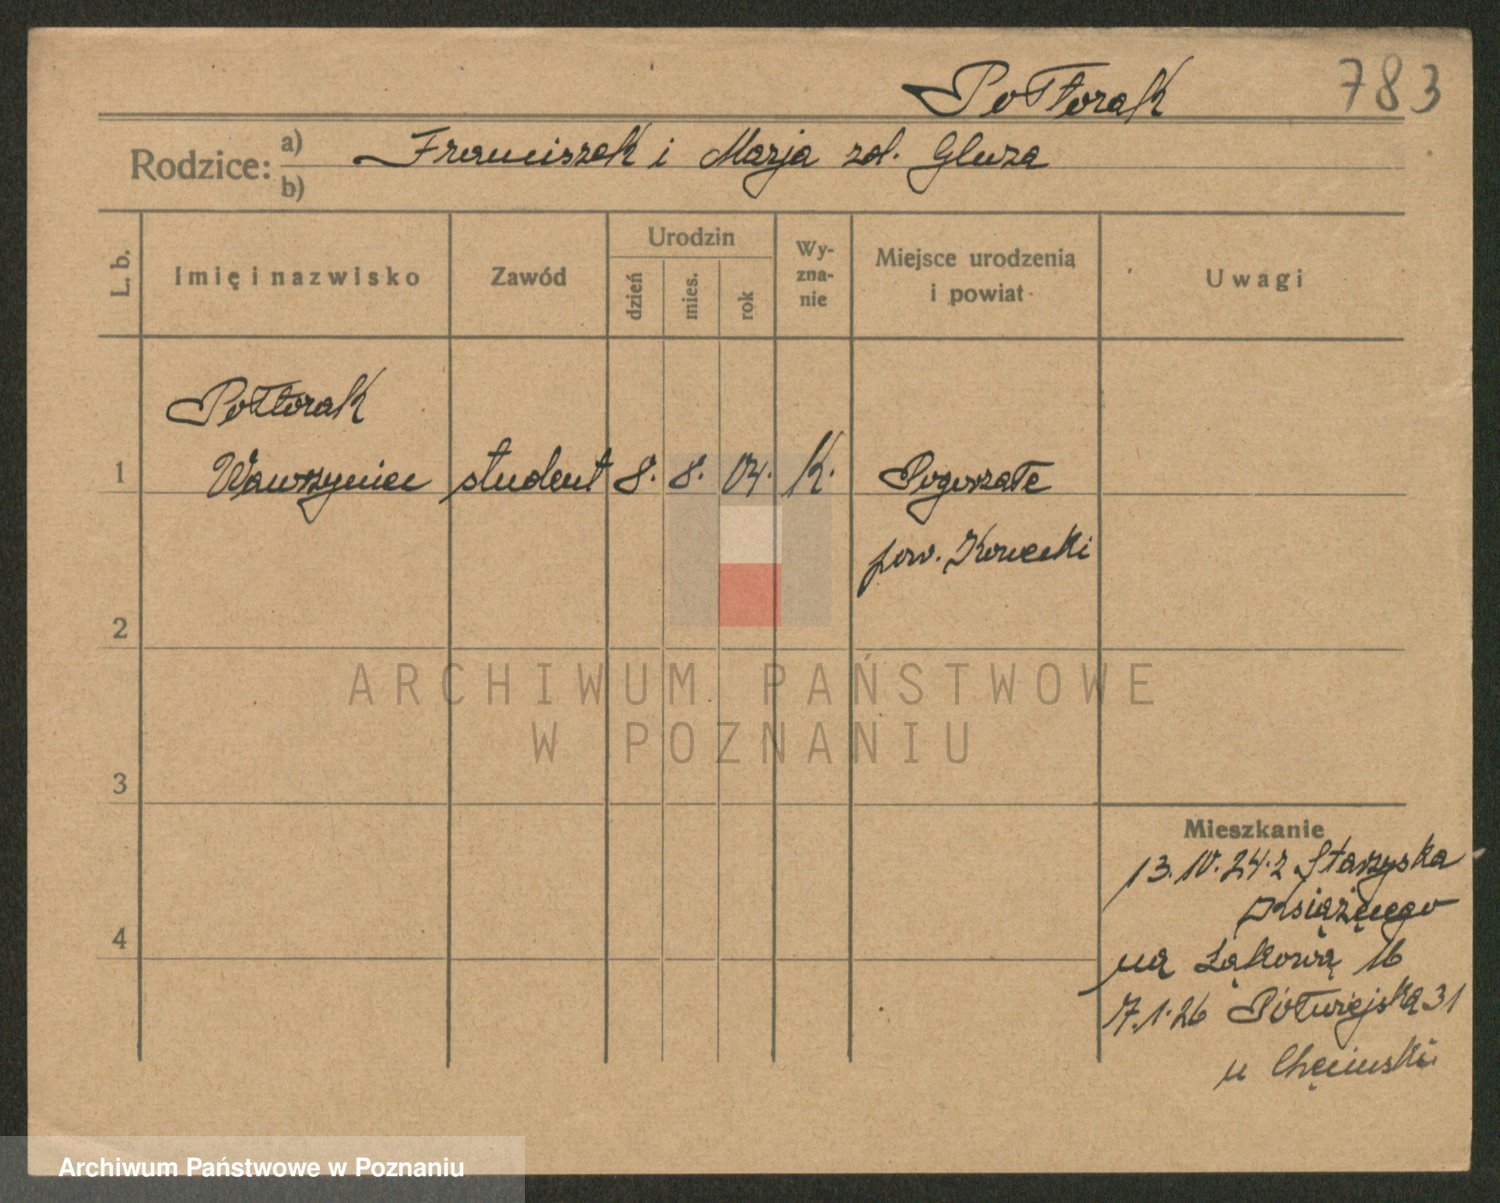 783
Półtorak
Rodzice: a) Franciszek i Marja zd. Gluza
b)
L. b.
Imię i nazwisko
Zawód
Urodzin
dzień
mies.
rok
Wy-
zna-
nie
Miejsce urodzenia
i powiat
Uwagi
Półtorak
1 Wawrzyniec student 8. 8. 04. K. Pogorzałe
pow. Konecki
2
3
4
Mieszkanie
13.10.24. z Starzyska
Książęcego
na Łąkową 16
7.1.26 Półwiejska 31
u Chęcinski
ARCHIWUM PAŃSTWOWE
W POZNANIU
Archiwum Państwowe w Poznaniu